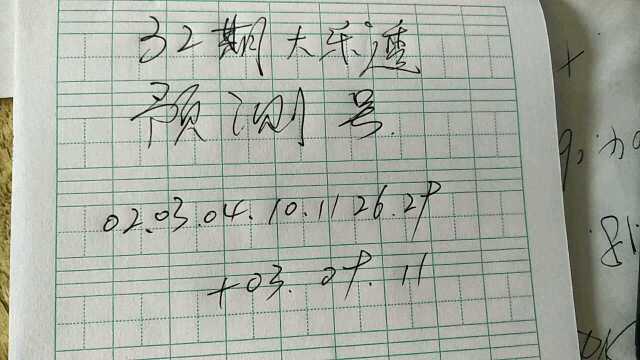 32期大乐透
预测号
02.03.04.10.11 26.29
+03.09.11